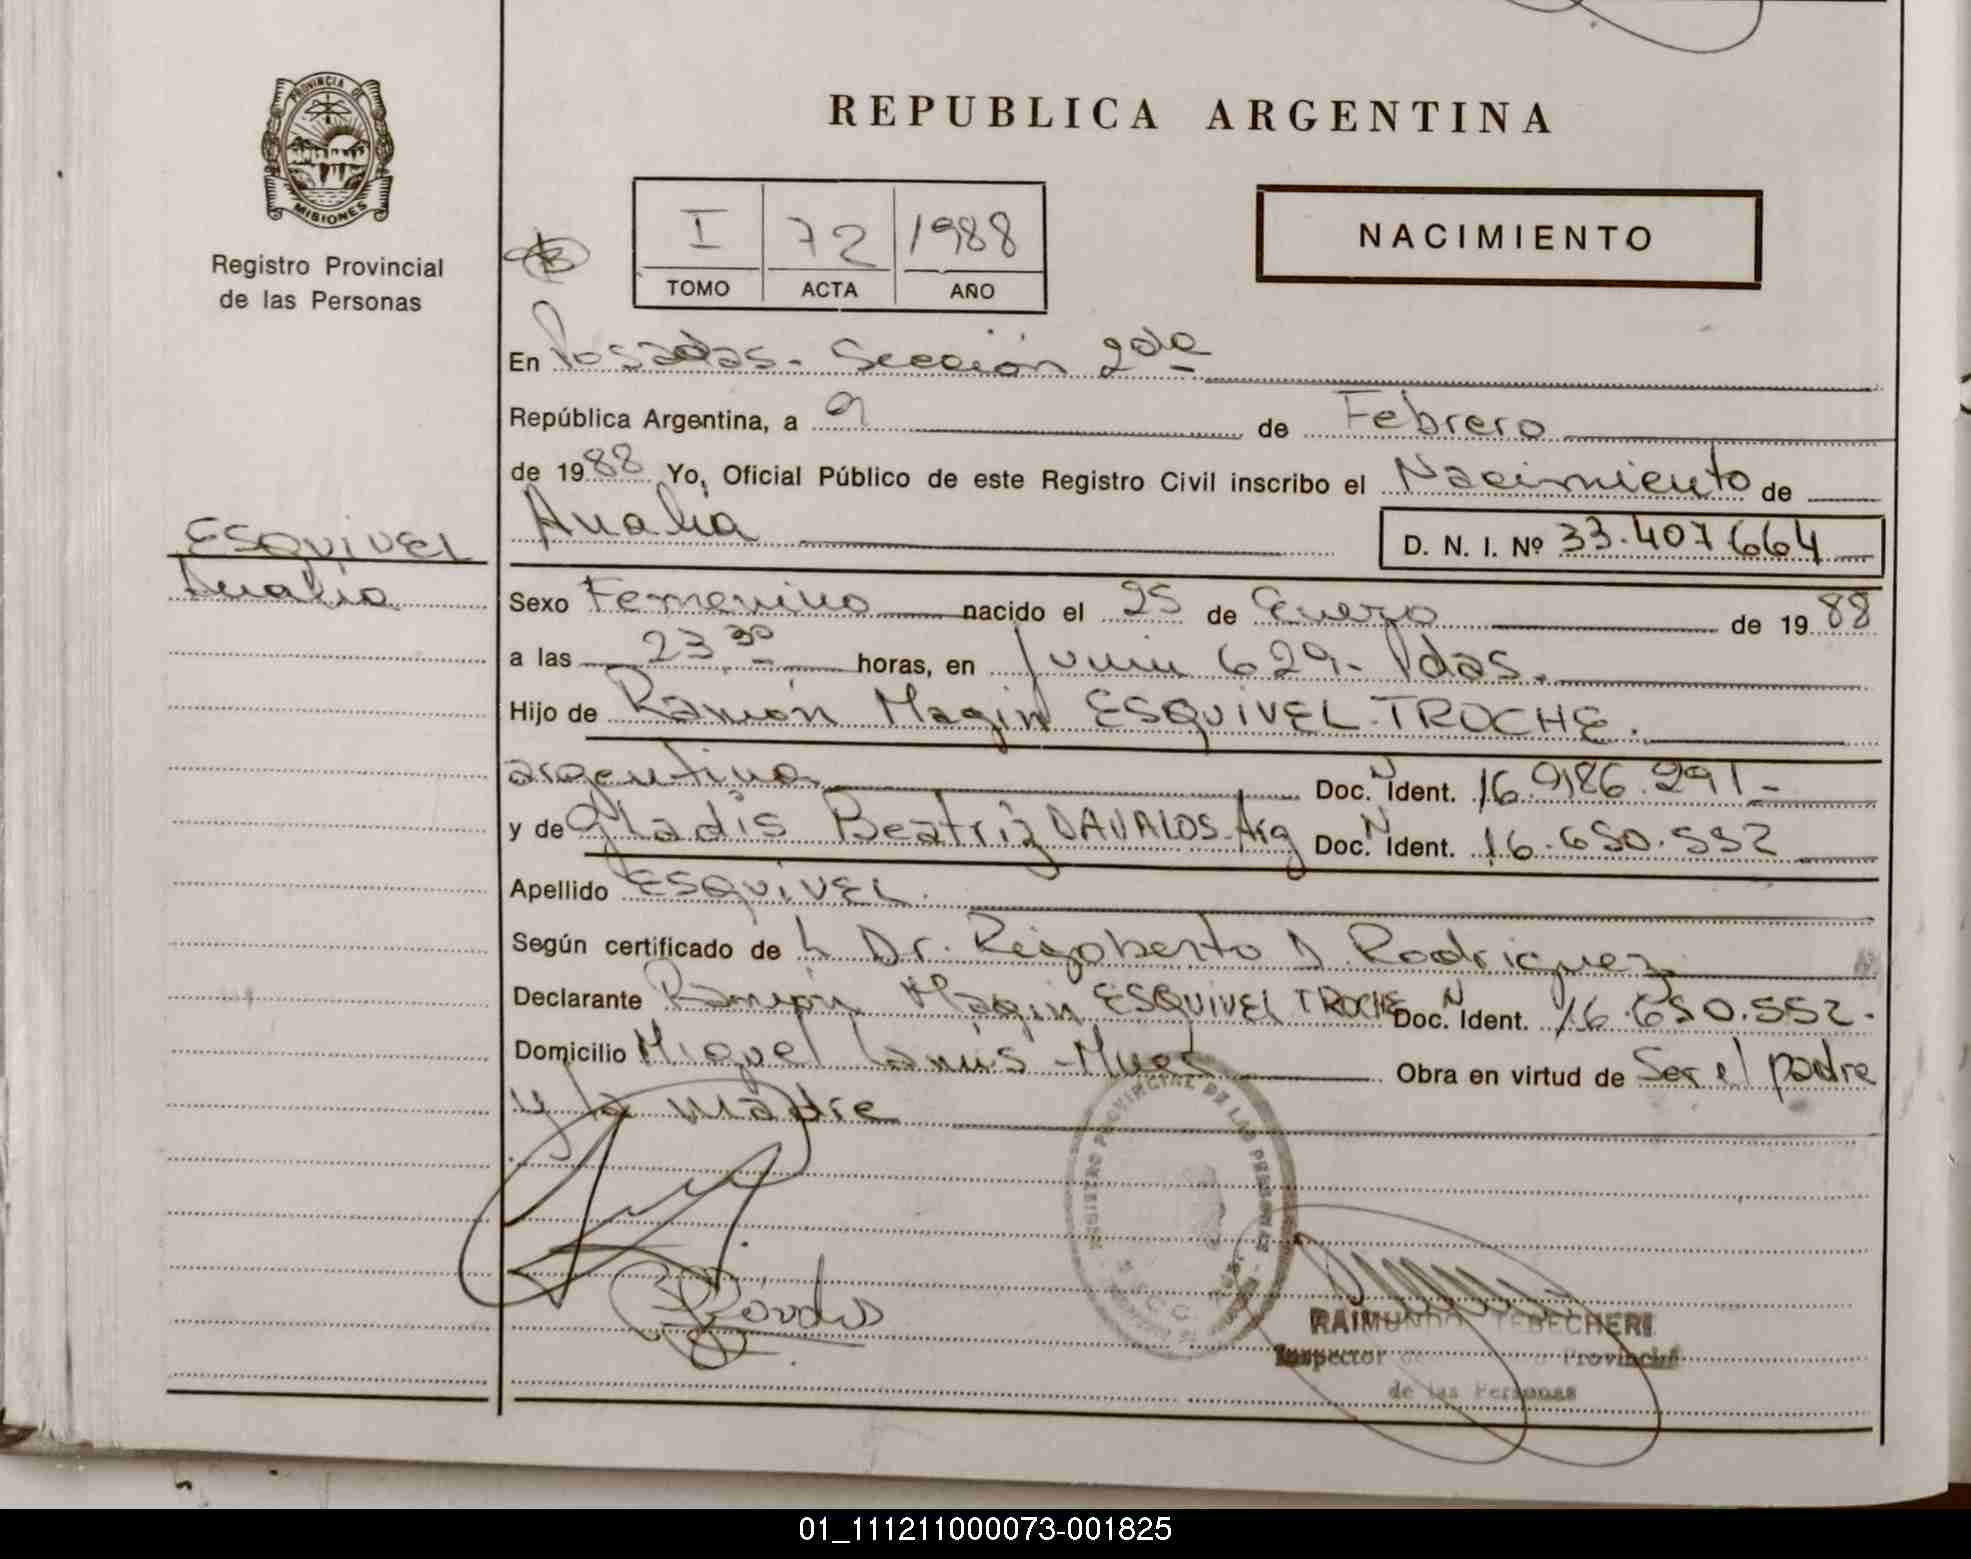 PROVINCIA DE
MISIONES
Registro Provincial
de las Personas
REPUBLICA ARGENTINA
I 72 1988
TOMO ACTA AÑO
NACIMIENTO
En Posadas - Sección 2da
República Argentina, a 9 de Febrero
de 1988 Yo, Oficial Público de este Registro Civil inscribo el Nacimiento de
ESQUIVEL
Analia
Analia D. N. I. Nº 33.407664
Sexo Femenino nacido el 25 de Enero de 1988
a las 23 30 horas, en Junin 629 - Pdas.
Hijo de Ramón Magin ESQUIVEL - TROCHE.
argentina Doc. N Ident. 16.986.291-
y de Gladis Beatriz DAVALOS - Arg Doc. N Ident. 16.650.552
Apellido ESQUIVEL.
Según certificado de Dr. Rigoberto D. Rodriguez
Declarante Ramón Magin ESQUIVEL TROCHE Doc. N Ident. 16.650.552.
Domicilio Miguel Lanus - Mnes Obra en virtud de Ser el padre
y la madre
REGISTRO PROVINCIAL DE LAS PERSONAS
RAIMUNDO TEBECHERI
Inspector Provincial
de las Personas
01_111211000073-001825